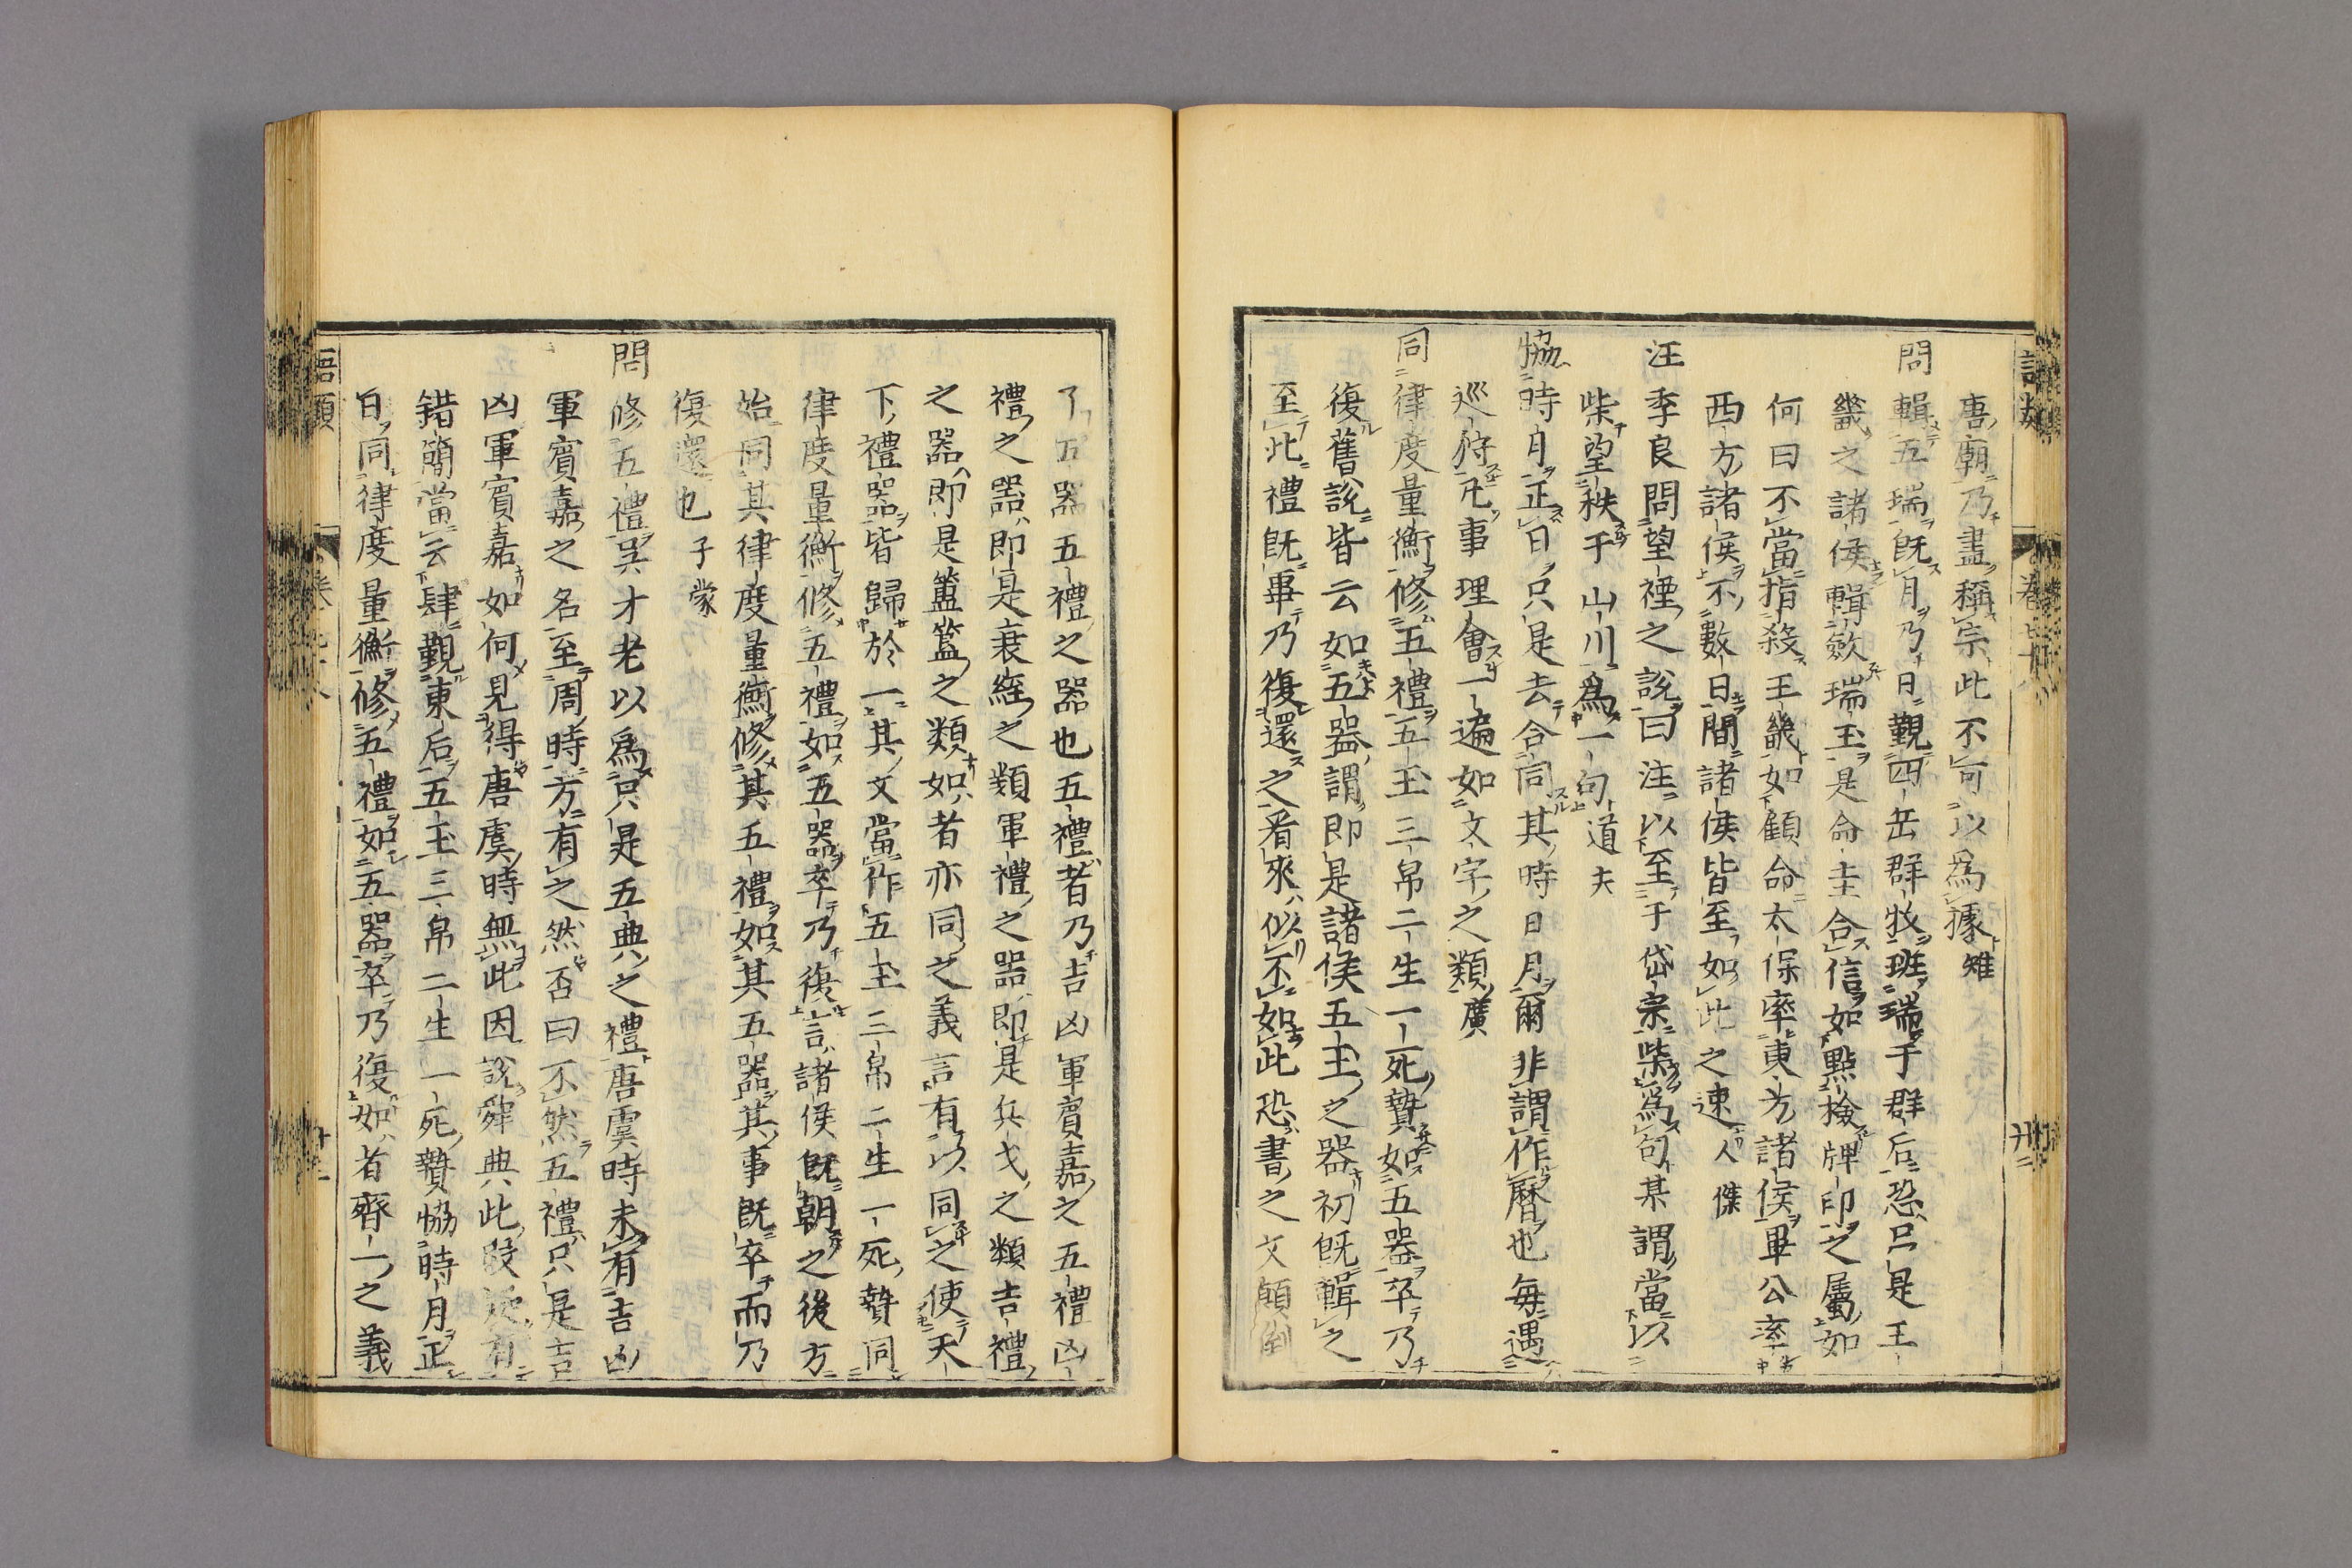 唐朝乃盡稱宗此不可以為據雉
問輯五瑞既月乃日覲四岳群牧班瑞于群后恐只是王
畿之諸侯輯斂瑞玉是命圭合信如點檢牌印之屬如
何曰不當指殺王畿如顧命太保率東方諸侯畢公率
西方諸侯不數日間諸侯皆至如此之速人傑
汪季良問望禋之說曰注以至于岱宗柴為句某謂當以
柴望秩于山川為一句道夫
協時月正日只是去合同其時日月爾非謂作曆也每遇
巡狩凡事理會一遍如文字之類廣
同律度量衡修五禮五玉三帛二生一死贄如五器卒乃
復舊說皆云如五器謂即是諸侯五玉之器初既輯之
至此禮既畢乃復還之看來似不如此恐書之文顛倒
了五器五禮之器也五禮者乃吉凶軍賓嘉之五禮凶
禮之器即是衰絰之類軍禮之器即是兵戈之類吉禮
之器即是簠簋之類如者亦同之義言有以同之使天
下禮器皆歸於一其文當作五玉三帛二生一死贄同
律度量衡修五禮如五器卒乃復言諸侯既朝之後方
始同其律度量衡修其五禮如其五器其事既卒而乃
復還也子蒙
問修五禮吳才老以為只是五典之禮唐虞時未有吉凶
軍賓嘉之名至周時方有之然否曰不然五禮只是吉
凶軍賓嘉如何見得唐虞時無此因說舜典此段疑有
錯簡當云肆覲東后五玉三帛二生一死贄協時月正
日同律度量衡修五禮如五器卒乃復如者齊一之義
語類